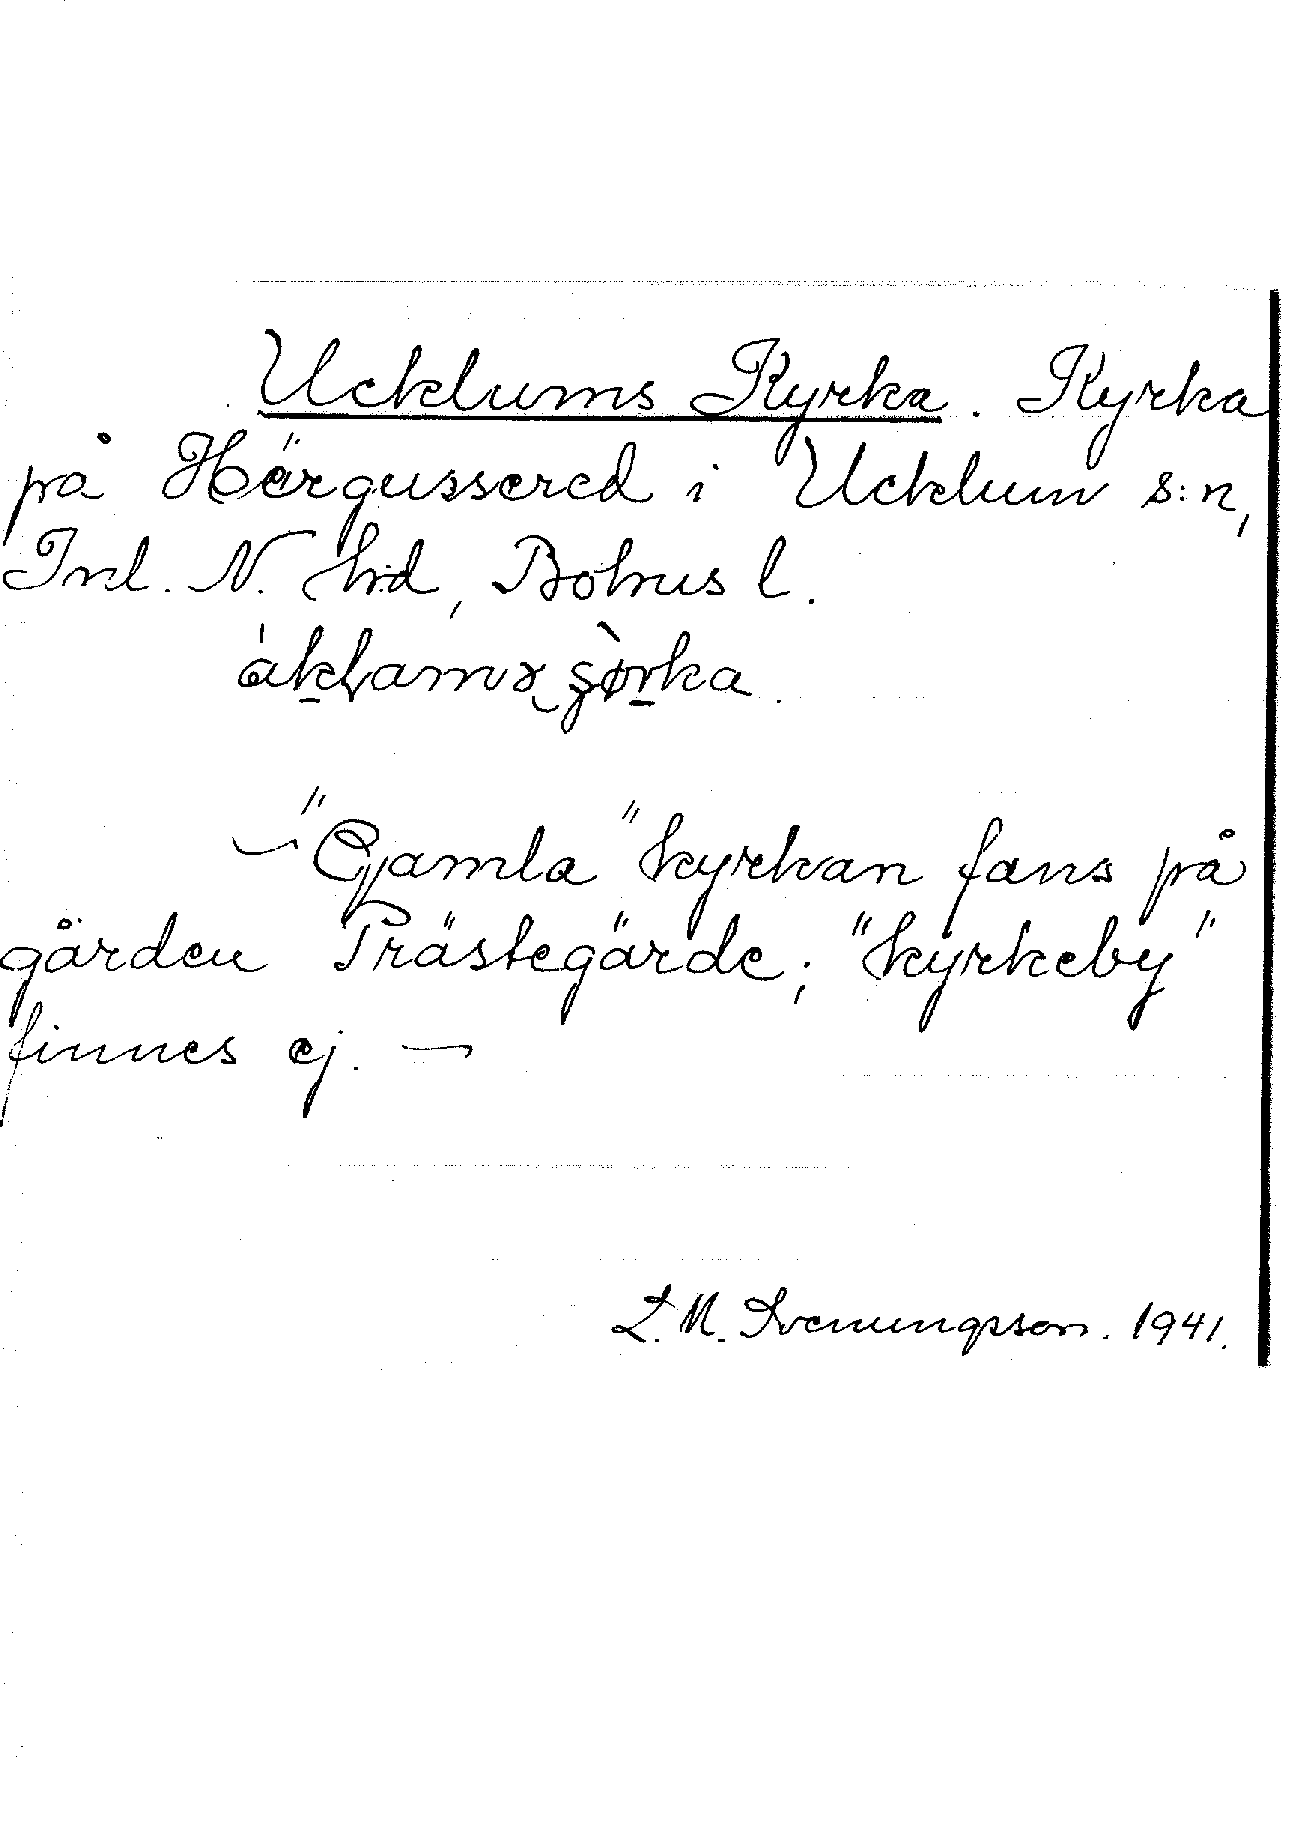 Ucklums Kyrka. Kyrka
på Härgussered i Ucklum s:n,
Inl. N. hd, Bohus l.
—"Gamla" kyrkan fans på
gården Prästegärde; "kyrkeby"
finnes ej. —
L. M. Svenungsson. 1941.